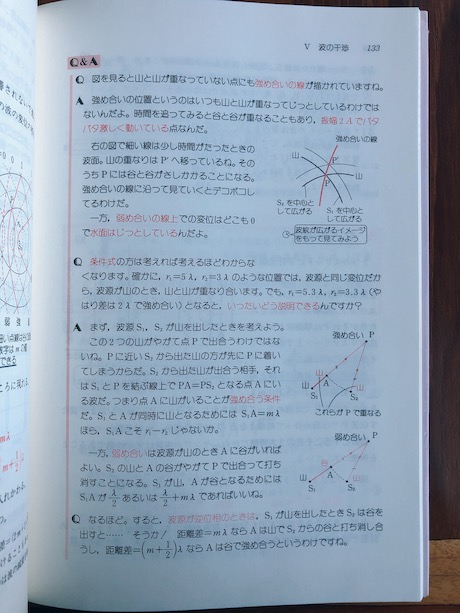 V 波の干渉 133
Q&A
Q 図を見ると山と山が重なっていない点にも強め合いの線が描かれていますね。
A 強め合いの位置というのはいつも山と山が重なってじっとしているわけでは
ないんだよ。時間を追ってみると谷と谷が重なることもあり、振幅2Aでバタ
バタ激しく動いている点なんだ。
右の図で細い線は少し時間がたったときの
波面。山の重なりはP'へ移っているね。その
うちPには谷と谷がさしかかることになる。
強め合いの線に沿って見ていくとデコボコし
てるわけだ。
一方，弱め合いの線上での変位はどこも0
で水面はじっとしているんだよ。
強め合いの線
山
P'
山
P
S₂を中心と
して広がる
S₁を中心と
して広がる
波紋が広がるイメージ
をもって見てみよう
Q 条件式の方は考えれば考えるほどわからな
くなります。確かに，r₁=5λ，r₂=3λのような位置では，波源と同じ変位だか
ら，波源が山のとき，山と山が重なり合います。でも，r₁=5.3λ，r₂=3.3λ（や
はり差は2λで強め合い）となると，いったいどう説明できるんですか？
A まず，波源S₁，S₂が山を出したときを考えよう。
この2つの山がやがて点Pで出合うわけでは
ないね。Pに近いS₂から出た山の方が先にPに着い
てしまうからだ。S₂から出た山が出合う相手，それ
はS₁とPを結ぶ線上でPA=PS₂となる点Aにい
る波だ。つまり点Aに山がいることが強め合う条件
だ。S₁とAが同時に山となるためにはS₁A=mλ
ほら，S₁Aこそr₁−r₂じゃないか。
強め合い
P
山
A
山
山
S₁
S₂
これらがPで重なる
一方，弱め合いは波源が山のときAに谷がいれば
よい。S₂の山とAの谷がやがてPで出合って打ち
消すことになる。S₁が山，Aが谷となるためには
S₁Aがλ/2あるいはλ/2+mλであればいいね。
弱め合い
P
谷
A
山
山
S₁
S₂
Q なるほど。すると，波源が逆位相のときは，S₁が山を出したときS₂は谷を
出すと…… そうか！ 距離差=mλならAは山でS₂からの谷と打ち消し合
うし，距離差=(m+1/2)λならAは谷で強め合うというわけですね。